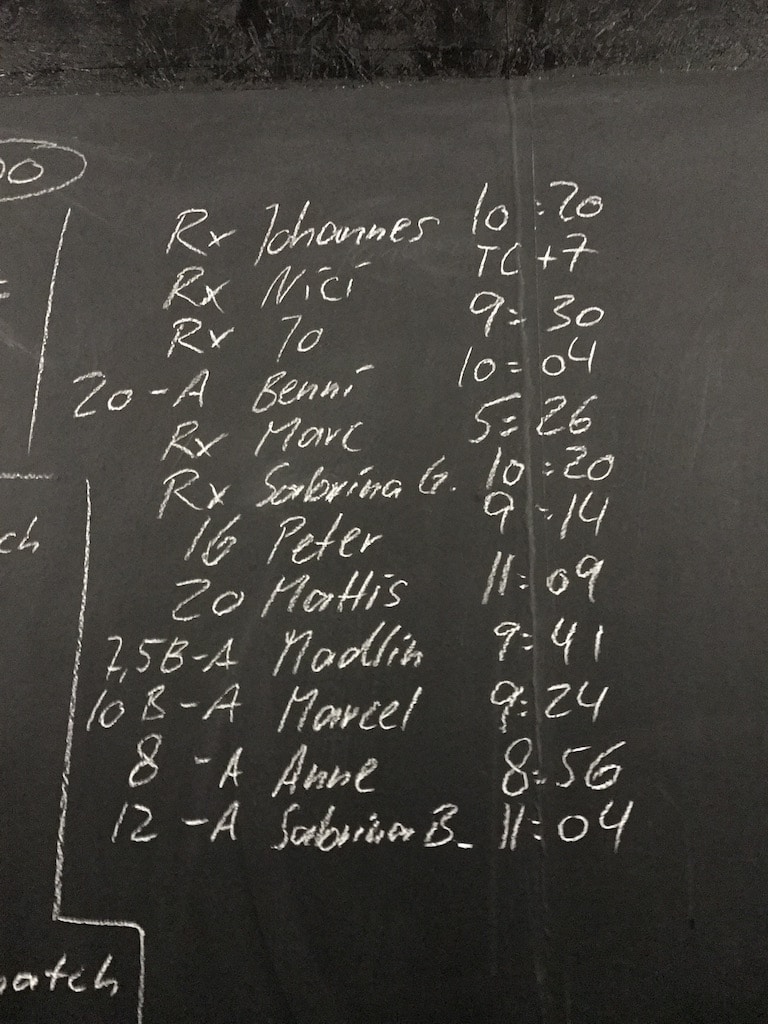 00
Rx Johannes 10:20
Rx Nici TC+7
Rx Jo 9:30
20-A Benni 10:04
Rx Marc 5:26
Rx Sabrina G. 10:20
16 Peter 9:14
20 Mattis 11:09
7,5B-A Madlin 9:41
10B-A Marcel 9:24
8-A Anne 8:56
12-A Sabrina B. 11:04
ch
atch